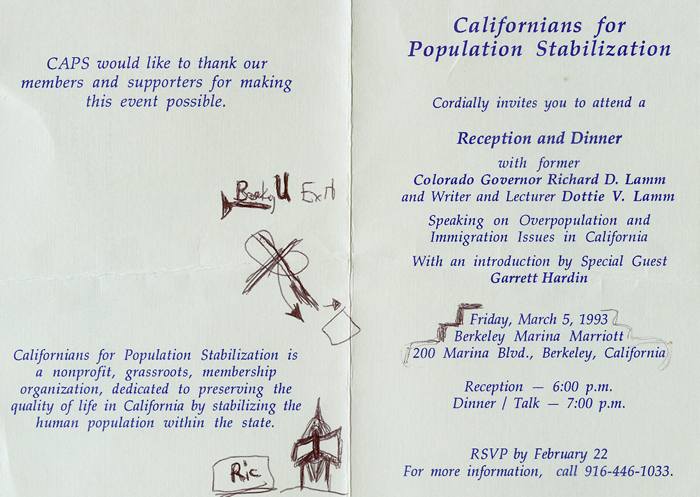 CAPS would like to thank our
members and supporters for making
this event possible.
Exit
Californians for Population Stabilization is
a nonprofit, grassroots, membership
organization, dedicated to preserving the
quality of life in California by stabilizing the
human population within the state.
Ric
Californians for
Population Stabilization
Cordially invites you to attend a
Reception and Dinner
with former
Colorado Governor Richard D. Lamm
and Writer and Lecturer Dottie V. Lamm
Speaking on Overpopulation and
Immigration Issues in California
With an introduction by Special Guest
Garrett Hardin
Friday, March 5, 1993
Berkeley Marina Marriott
200 Marina Blvd., Berkeley, California
Reception — 6:00 p.m.
Dinner / Talk — 7:00 p.m.
RSVP by February 22
For more information, call 916-446-1033.